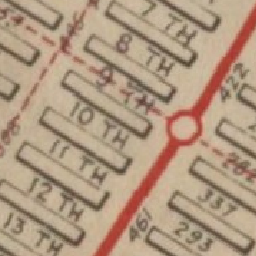 7 TH
8 TH
9 TH
10 TH
11 TH
12 TH
13 TH
422
461
337
293